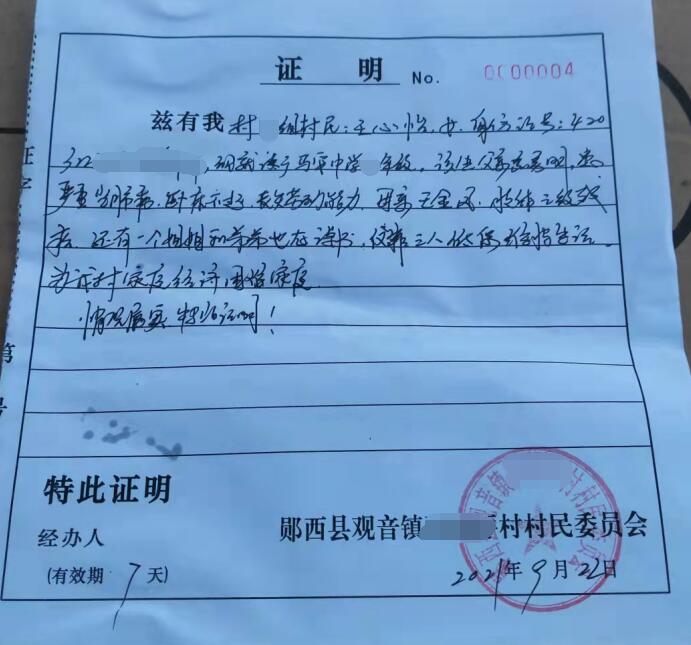 证 明 No. 0000004
兹有我村 组村民:王心怡,女,身份证号:420
,现就读于马 中学 年级,该生父亲 ,患
严重 病,卧床不起,丧失劳动能力,母亲王金凤,肢体三级残
疾,还有一个姐姐和弟弟也在读书, 三人依 生活。
为我村家庭经济困难家庭
情况属实 特此证明!
第
号
特此证明
经办人
(有效期 7 天)
郧西县观音镇 村村民委员会
村村民委员会
2021年9月22日